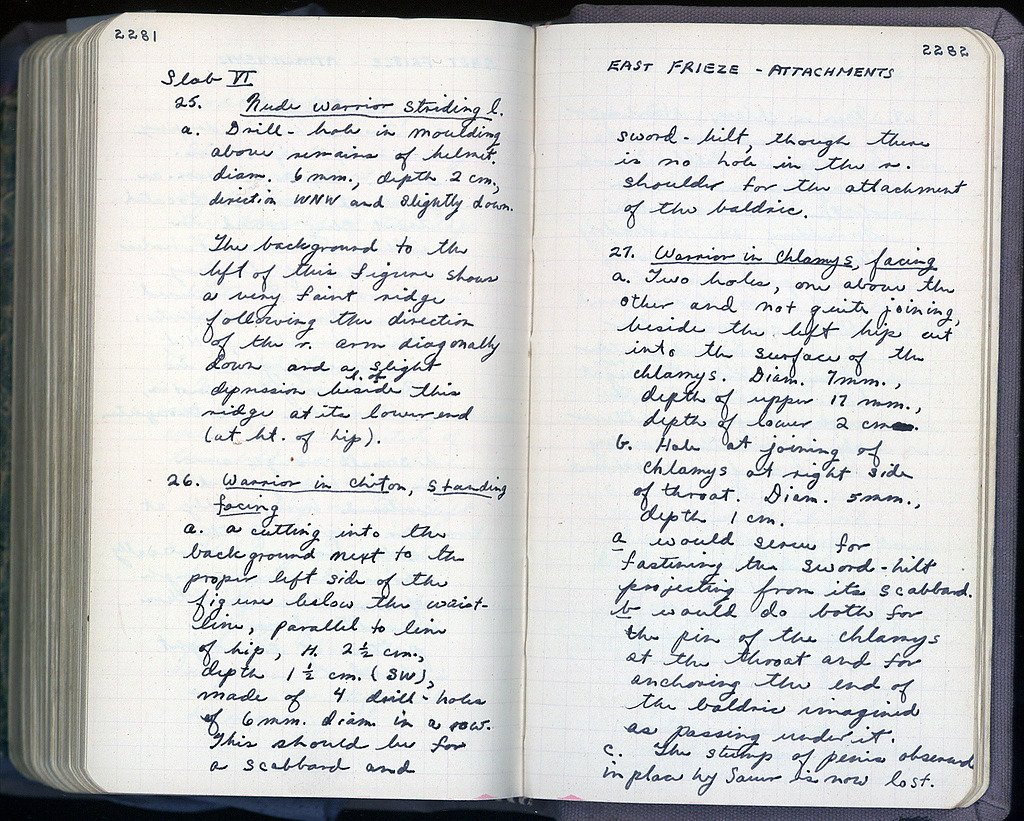 2281
Slab VI
25. Nude Warrior Striding l.
a. Drill-hole in moulding
above remains of helmet.
diam. 6 mm., depth 2 cm.,
direction WNW and slightly down.
The background to the
left of this figure shows
a very faint ridge
following the direction
of the r. arm diagonally
down and a slight
depression beside this
ridge at its lower end
(at ht. of hip).
26. Warrior in chiton, standing
facing
a. a cutting into the
background next to the
proper left side of the
figure below the waist-
line, parallel to line
of hip, H. 2 ½ cm.,
depth 1 ½ cm. (SW),
made of 4 drill-holes
of 6 mm. diam in a row.
This should be for
a scabbard and
2282
EAST FRIEZE - ATTACHMENTS
sword-hilt, though there
is no hole in the r.
shoulder for the attachment
of the baldric.
27. Warrior in Chlamys, facing
a. Two holes, one above the
other and not quite joining,
beside the left hip cut
into the surface of the
chlamys. Diam. 7mm.,
depth of upper 17 mm.,
depth of lower 2 cm.
b. Hole at joining of
chlamys at right side
of throat. Diam. 5mm.,
depth 1 cm.
a would serve for
fastening the sword-hilt
projecting from its scabbard.
b would do both for
the pin of the chlamys
at the throat and for
anchoring the end of
the baldric imagined
as passing under it.
c. The stump of penis observed
in place by Sauer is now lost.